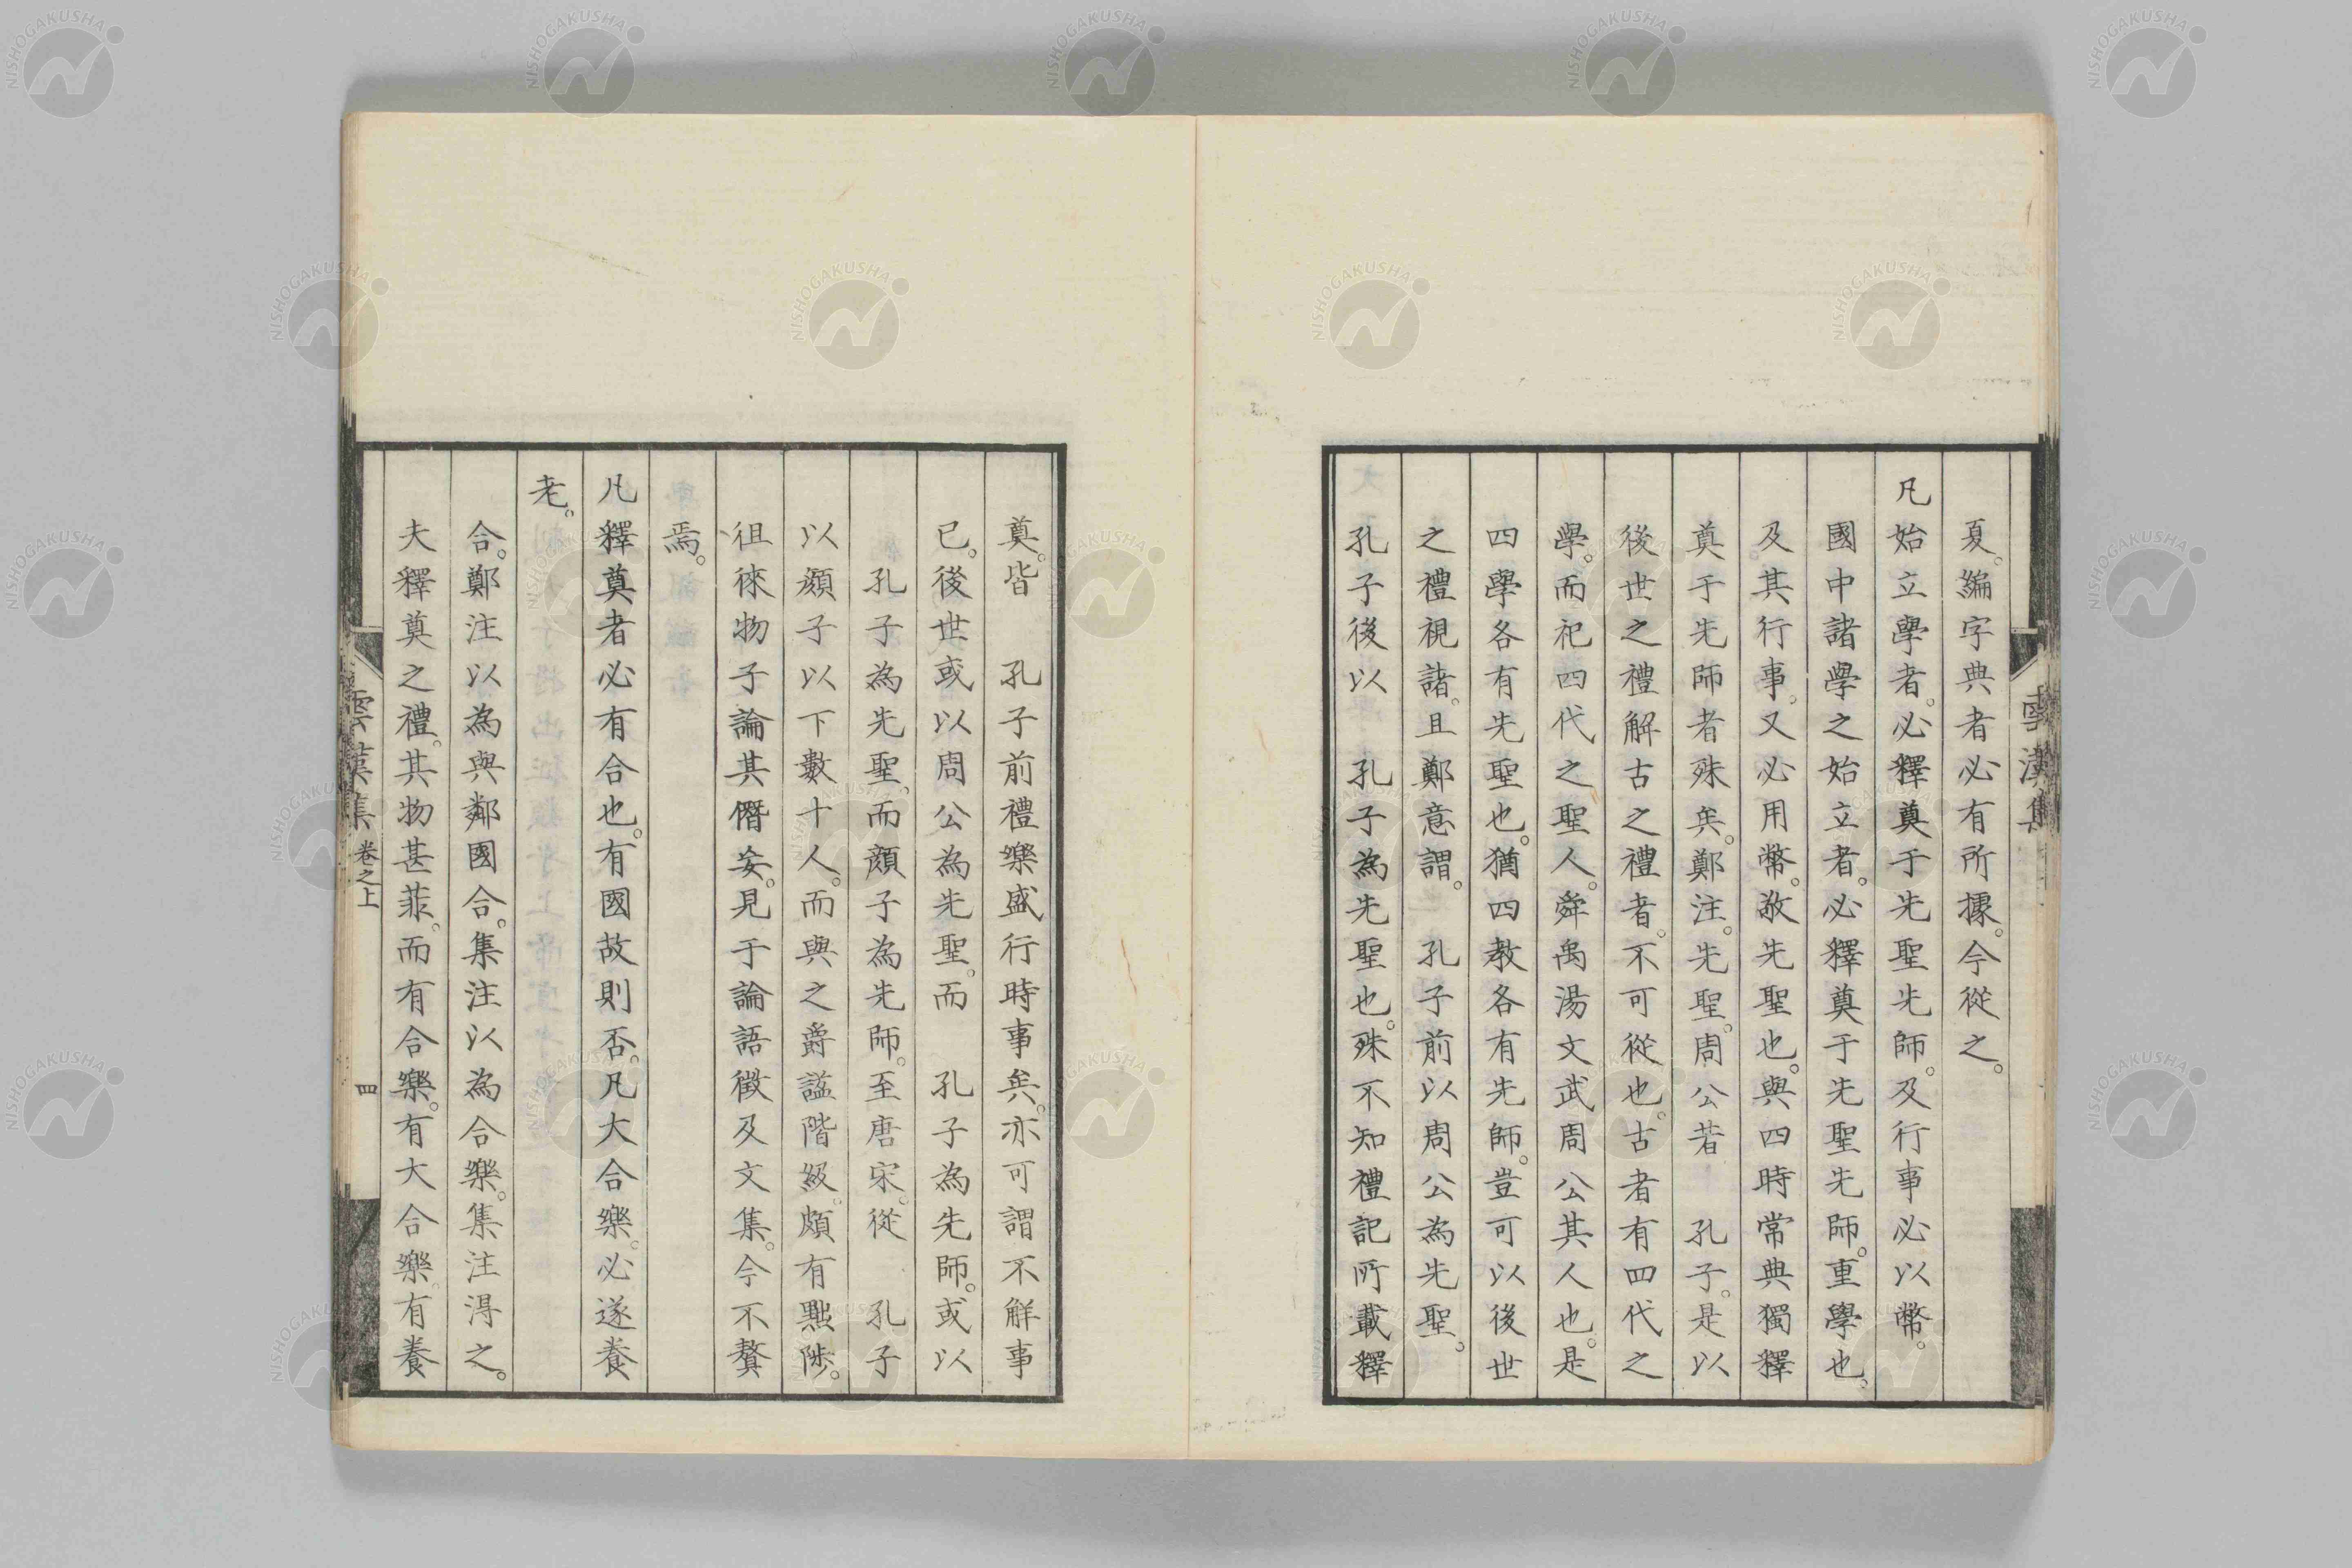 雲漢集
夏。編字典者必有所據。今從之。
凡始立學者。必釋奠于先聖先師。及行事必以幣。
國中諸學之始立者。必釋奠于先聖先師。重學也。
及其行事。又必用幣。敬先聖也。與四時常典獨釋
奠于先師者殊矣。鄭注。先聖。周公若　孔子。是以
後世之禮解古之禮者。不可從也。古者有四代之
學。而祀四代之聖人。舜禹湯文武周公其人也。是
四學各有先聖也。猶四教各有先師。豈可以後世
之禮視諸。且鄭意謂。　孔子前以周公為先聖。
孔子後以　孔子為先聖也。殊不知禮記所載釋
奠。皆　孔子前禮樂盛行時事矣。亦可謂不解事
已。後世或以周公為先聖。而　孔子為先師。或以
　孔子為先聖。而顏子為先師。至唐宋。從　孔子
以顏子以下數十人。而與之爵謚階級。頗有黜陟。
徂徠物子論其僭妄。見于論語徵及文集。今不贅
焉。
凡釋奠者必有合也。有國故則否。凡大合樂。必遂養
老。
合。鄭注以為與鄰國合。集注以為合樂。集注得之。
夫釋奠之禮。其物甚菲。而有合樂。有大合樂。有養
雲漢集　卷之上　四
NISHOGAKUSHA